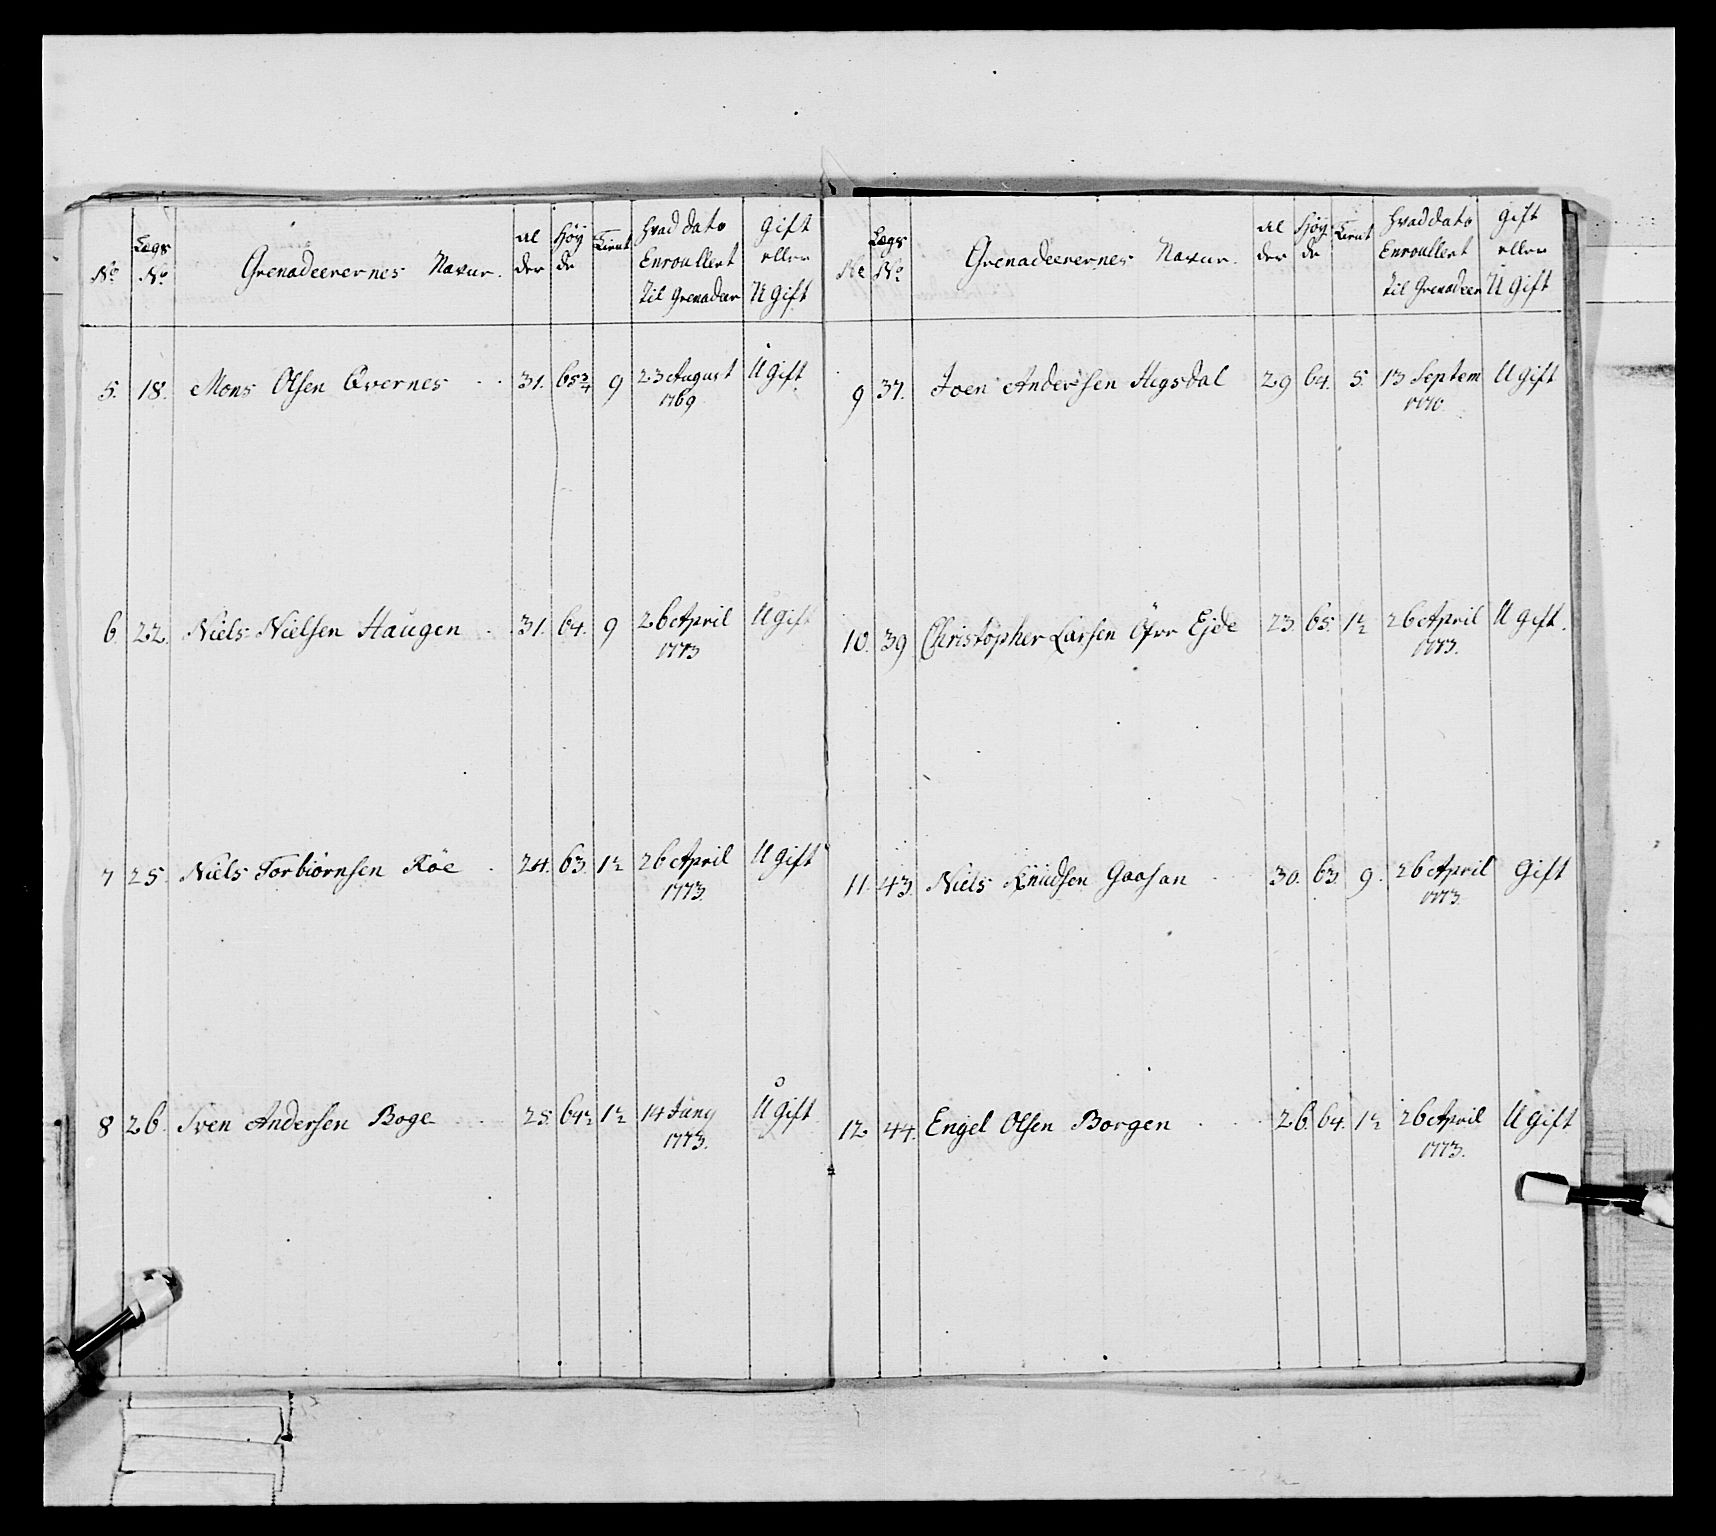 No
Lægs No
Grenadeerernes Navne.
Al der
Höy de
Tient
Hvad dato Enroullert til Grenadeer
Gift eller Ugift
5. 18. Mons Olsen Qvernes 31. 65¾ 9 23 August 1769 Ugift
6. 22. Niels Nielsen Haugen 31. 64. 9 26 April 1773 Ugift
7 25. Niels Torbiørnsen Röe 24. 63. 1½ 26 April 1773. Ugift
8 26. Sven Andersen Boge 25. 64½ 1½ 14 Juny 1773. Ugift
No
Lægs No
Grenadeerernes Navne.
Al der
Höy de
Tient
Hvad dato Enroullert til Grenadeer
Gift eller Ugift
9 37. Joen Andersen Hegsdal 29 64. 5. 13 Septem 1770. Ugift
10. 39 Christopher Larsen Öfre Ejde 23. 65. 1½ 26 April 1773. Ugift.
11. 43. Niels Knudsen Gaasan 30. 63. 9. 26 April 1773. Gift
12. 44. Engel Olsen Borgen 26. 64. 1½ 26 April 1773. Ugift